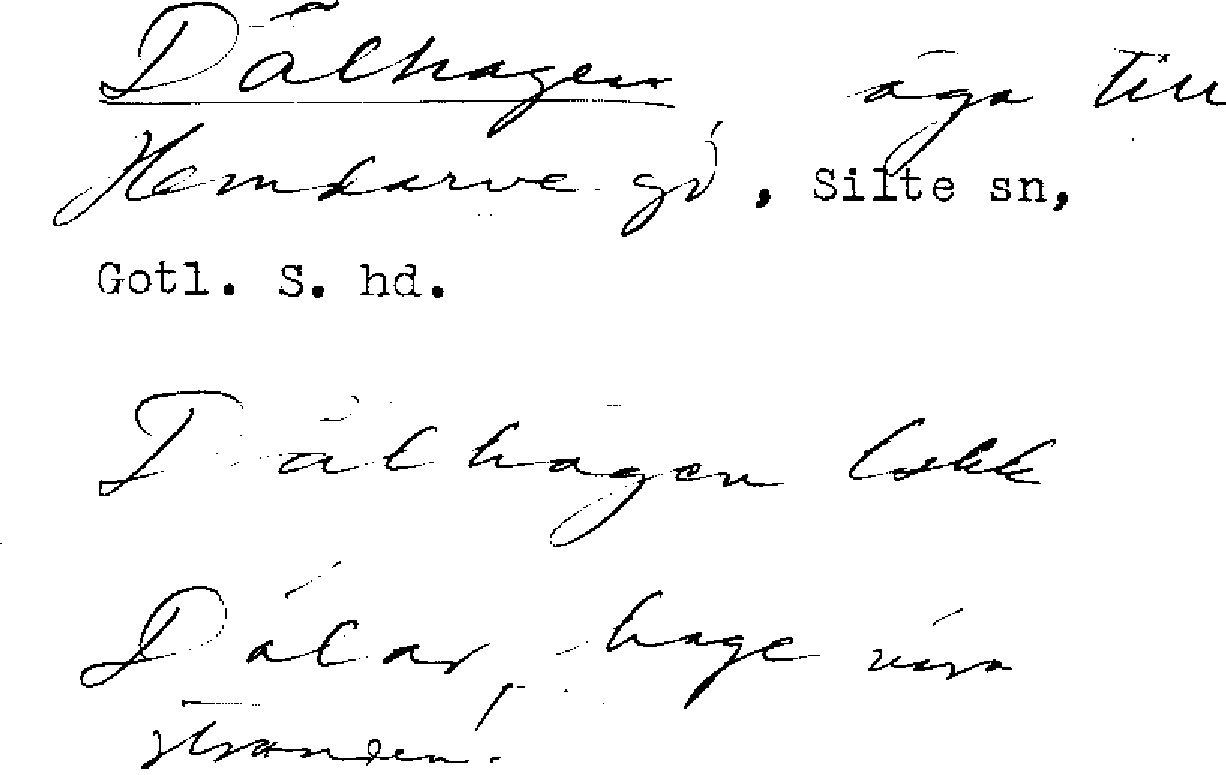 Dålhagen, äga till
Hemdarve gd, Silte sn,
Gotl. S. hd.
Dålhagen Lskk
Dålar, hage vira
stranden.